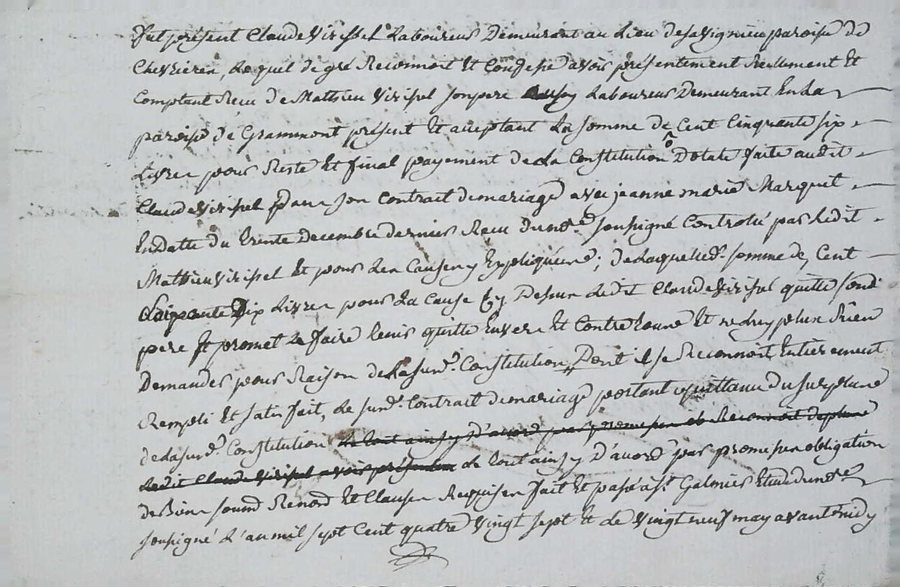 fut présent Claude Virissel Laboureur Demeurant au Lieu de savignieu paroisse de
Chevrieres, Lequel de gré Reconnoit Et Confesse avoir présentement Réelement Et
Comptant Recu de Mathieu Virissel son pere aussy Laboureur Demeurant En La
paroisse de Grammont présent Et acceptant La somme de Cent Cinquante six
Livres pour Reste Et final payement de La Constitution Dotale faite audit
Claude Virissel Dans son Contrat de mariage avec jeanne marie Marquet
En datte du trente Decembre dernier Recu du nore. soussigné Controlé par Ledit
Mathieu Virissel Et pour Les Causes y Expliquées; de Laquelle de. somme de Cent
Cinquante six Livres pour La Cause Cy Dessus Ledit Claude Virissel quitte sondit
pere Et promet Le faire tenir quitte Envers Et Contre tous Et ne Luy plus Rien
Demander pour Raison de La susd. Constitution, Dont il se Reconnoit Entierement
Rempli Et satisfait, Le susd. Contrat de mariage portant quittance du surplus
de La susd. Constitution Le tout ainsy D'acord par promesses et Reconnoit de plus
Ledit Claude Virissel avoir présentem Le tout ainsy D'acord par promesses obligation
de Biens soumd Renond Et Clauses Requises fait Et passé a st. Galmier Etude du nore
soussigné L'an mil sept Cent quatre vingt sept Et Le vingt neuf may avant midy